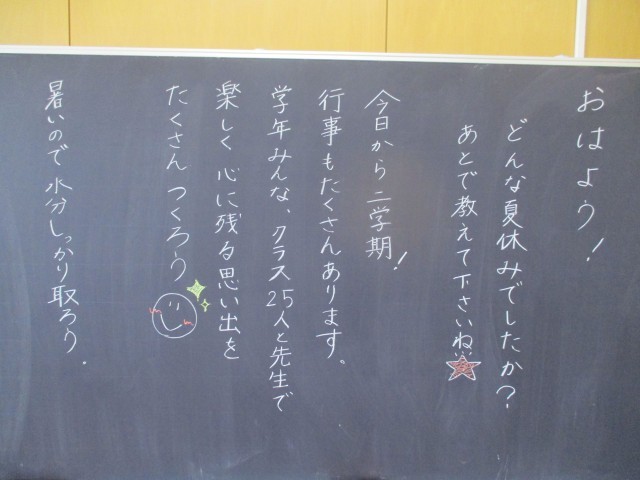 おはよう!
どんな夏休みでしたか?
あとで教えて下さいね!!
今日から二学期!
行事もたくさんあります。
学年みんな、クラス25人と先生で
楽しく心に残る思い出を
たくさんつくろう
暑いので水分しっかり取ろう.